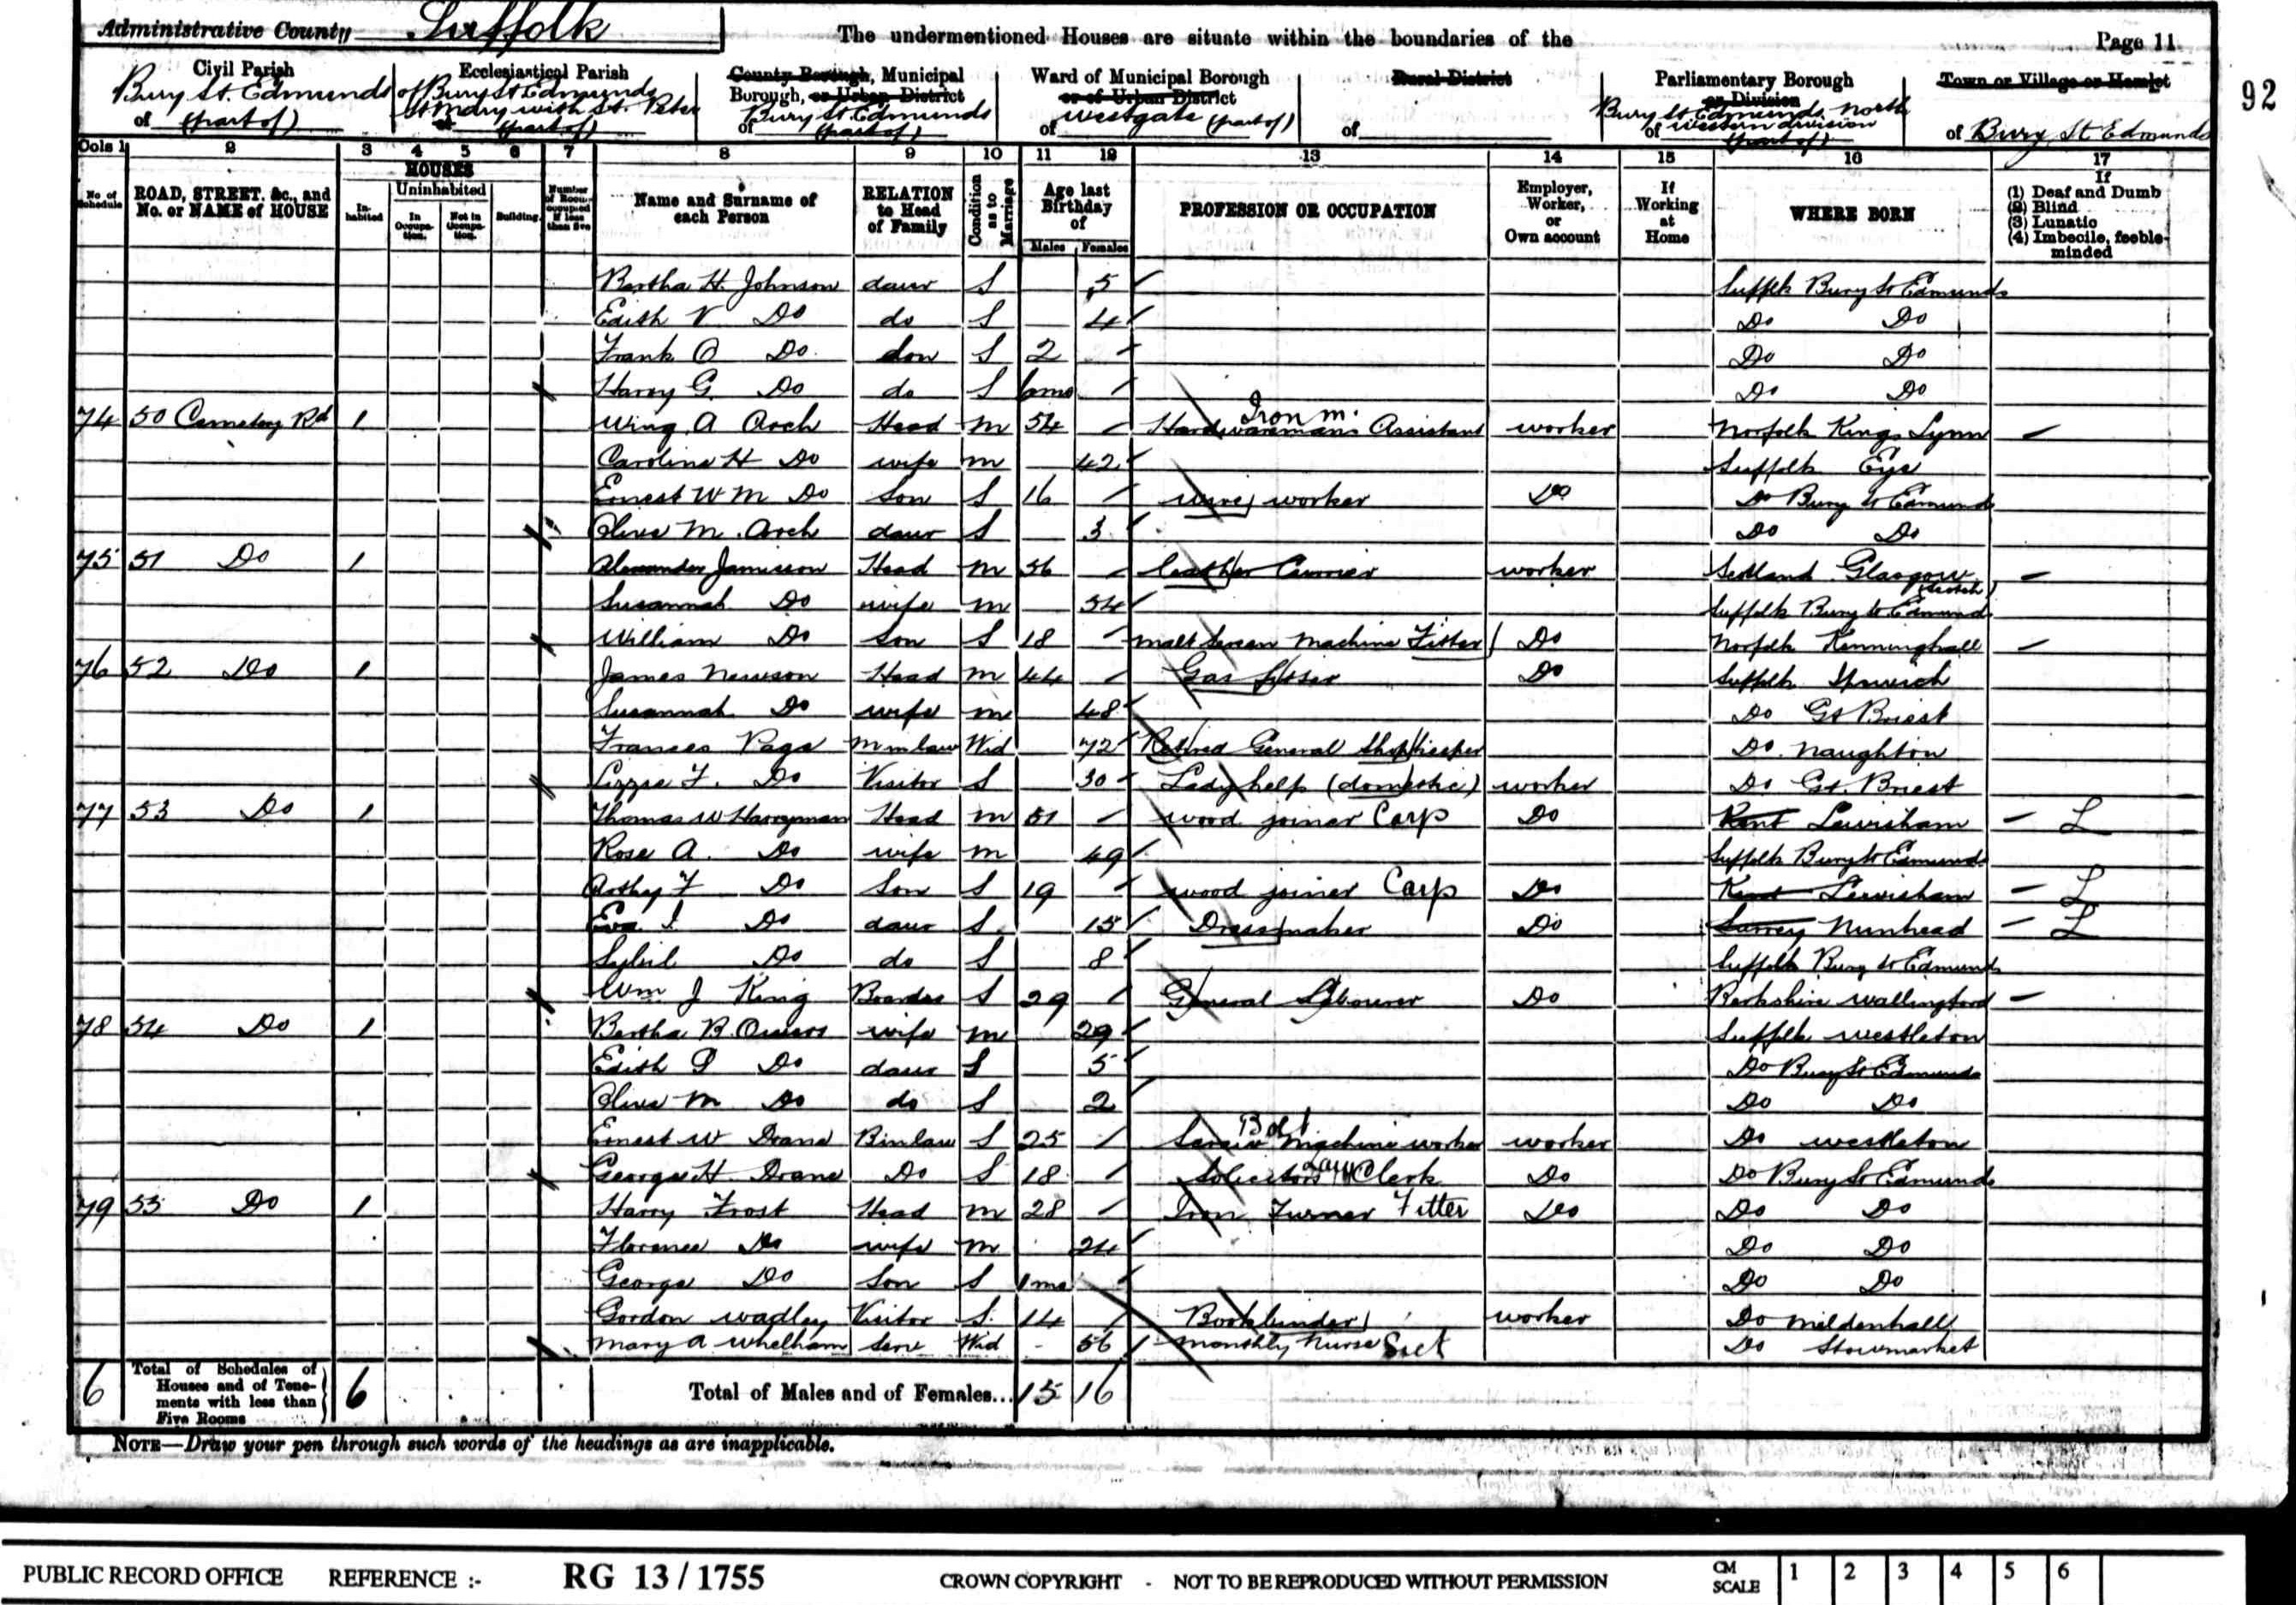 Administrative County Suffolk
The undermentioned Houses are situate within the boundaries of the
Page 11
92
Civil Parish of Bury St. Edmunds (part of)
Ecclesiastical Parish of Bury St Edmunds St Mary with St. Peter (part of)
County Borough, Municipal Borough, or Urban District of Bury St Edmunds (part of)
Ward of Municipal Borough or of Urban District of Westgate (part of)
Rural District of
Parliamentary Borough or Division of Bury St Edmunds, North Western division (part of)
Town or Village or Hamlet of Bury St Edmunds
Cols 1 2 3 4 5 6 7 8 9 10 11 12 13 14 15 16 17
No of Schedule
ROAD, STREET, &c., and No. or NAME of HOUSE
HOUSES
Inhabited
Uninhabited
In Occupation.
Not in Occupation.
Building.
Number of Rooms occupied if less than five
Name and Surname of each Person
RELATION to Head of Family
Condition as to Marriage
Age last Birthday of
Males Females
PROFESSION OR OCCUPATION
Employer, Worker, or Own account
If Working at Home
WHERE BORN
If (1) Deaf and Dumb (2) Blind (3) Lunatic (4) Imbecile, feeble-minded
Bertha H. Johnson daur S 5 Suffolk Bury St Edmunds
Edith V Do do S 4 Do Do
Frank O Do son S 2 Do Do
Harry G. Do do S 6mo Do Do
74 50 Cemetery Rd 1 Wing. A Arch Head M 54 Hardwaremans Assistant Iron m. worker Norfolk Kings Lynn
Caroline H Do wife m 42 Suffolk Eye
Ernest W M Do Son S 16 wire worker Do Do Bury St Edmunds
Olive M. Arch daur S 3 Do Do
75 51 Do 1 Alexander Jamieson Head M 56 Leather Currier worker Scotland Glasgow (Scotch)
Susannah Do wife m 54 Suffolk Bury St Edmunds
William Do Son S 18 Malt Screen Machine Fitter Do Norfolk Kenninghall
76 52 Do 1 James Newson Head m 44 Gas fitter Do Suffolk Ipswich
Susannah Do wife m 48 Do Gt Briest
Frances Page M in law Wid 72 Retired General Shopkeeper Do Naughton
Lizzie F. Do Visitor S 30 Lady help (domestic) worker Do Gt. Briest
77 53 Do 1 Thomas W Harryman Head M 51 wood joiner Carp Do Kent Lewisham L
Rose A. Do wife m 49 Suffolk Bury St Edmunds
F Do Son S 19 wood joiner Carp Do Kent Lewisham L
Eva I Do daur S 15 Dressmaker Do Surrey Nunhead L
Sybil Do do S 8 Suffolk Bury St Edmunds
Wm J King Boarder S 29 General Labourer Do Berkshire Wallingford
78 54 Do 1 Bertha B. Owers wife m 29 Suffolk Westleton
Edith P Do daur S 5 Do Bury St Edmunds
Olive M Do do S 2 Do Do
Ernest W Drane B in law S 25 Screw Bolt Machine worker worker Do Westleton
George H. Drane Do S 18 Solicitors Law Clerk Do Do Bury St Edmunds
79 55 Do 1 Harry Frost Head m 28 Iron Turner Fitter Do Do Do
Florence Do wife m 24 Do Do
George Do Son S 1mo Do Do
Gordon Wadley Visitor S 14 Bookbinder worker Do Mildenhall
Mary A Whelham Serv Wid 56 Monthly Nurse Sick Do Stowmarket
6 Total of Schedules of Houses and of Tenements with less than Five Rooms 6 Total of Males and of Females... 15 16
NOTE—Draw your pen through such words of the headings as are inapplicable.
PUBLIC RECORD OFFICE REFERENCE :- RG 13 / 1755 CROWN COPYRIGHT - NOT TO BE REPRODUCED WITHOUT PERMISSION CM SCALE 1 2 3 4 5 6